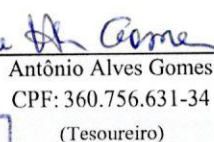 Antônio Alves Gomes
CPF: 360.756.631-34
(Tesoureiro)